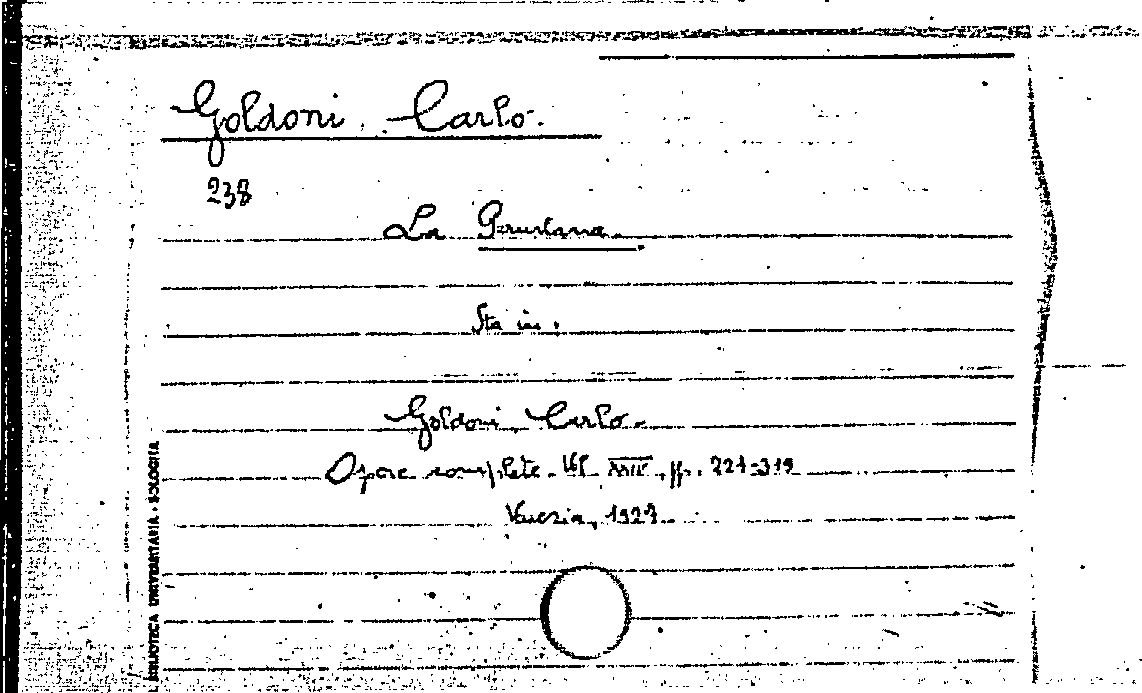 Goldoni, Carlo.
238
La Peruviana.
Sta in:
Goldoni, Carlo.
Opere complete. Vol. XXIV, pp. 221-319
Venezia, 1927.
BIBLIOTECA UNIVERSITARIA - BOLOGNA